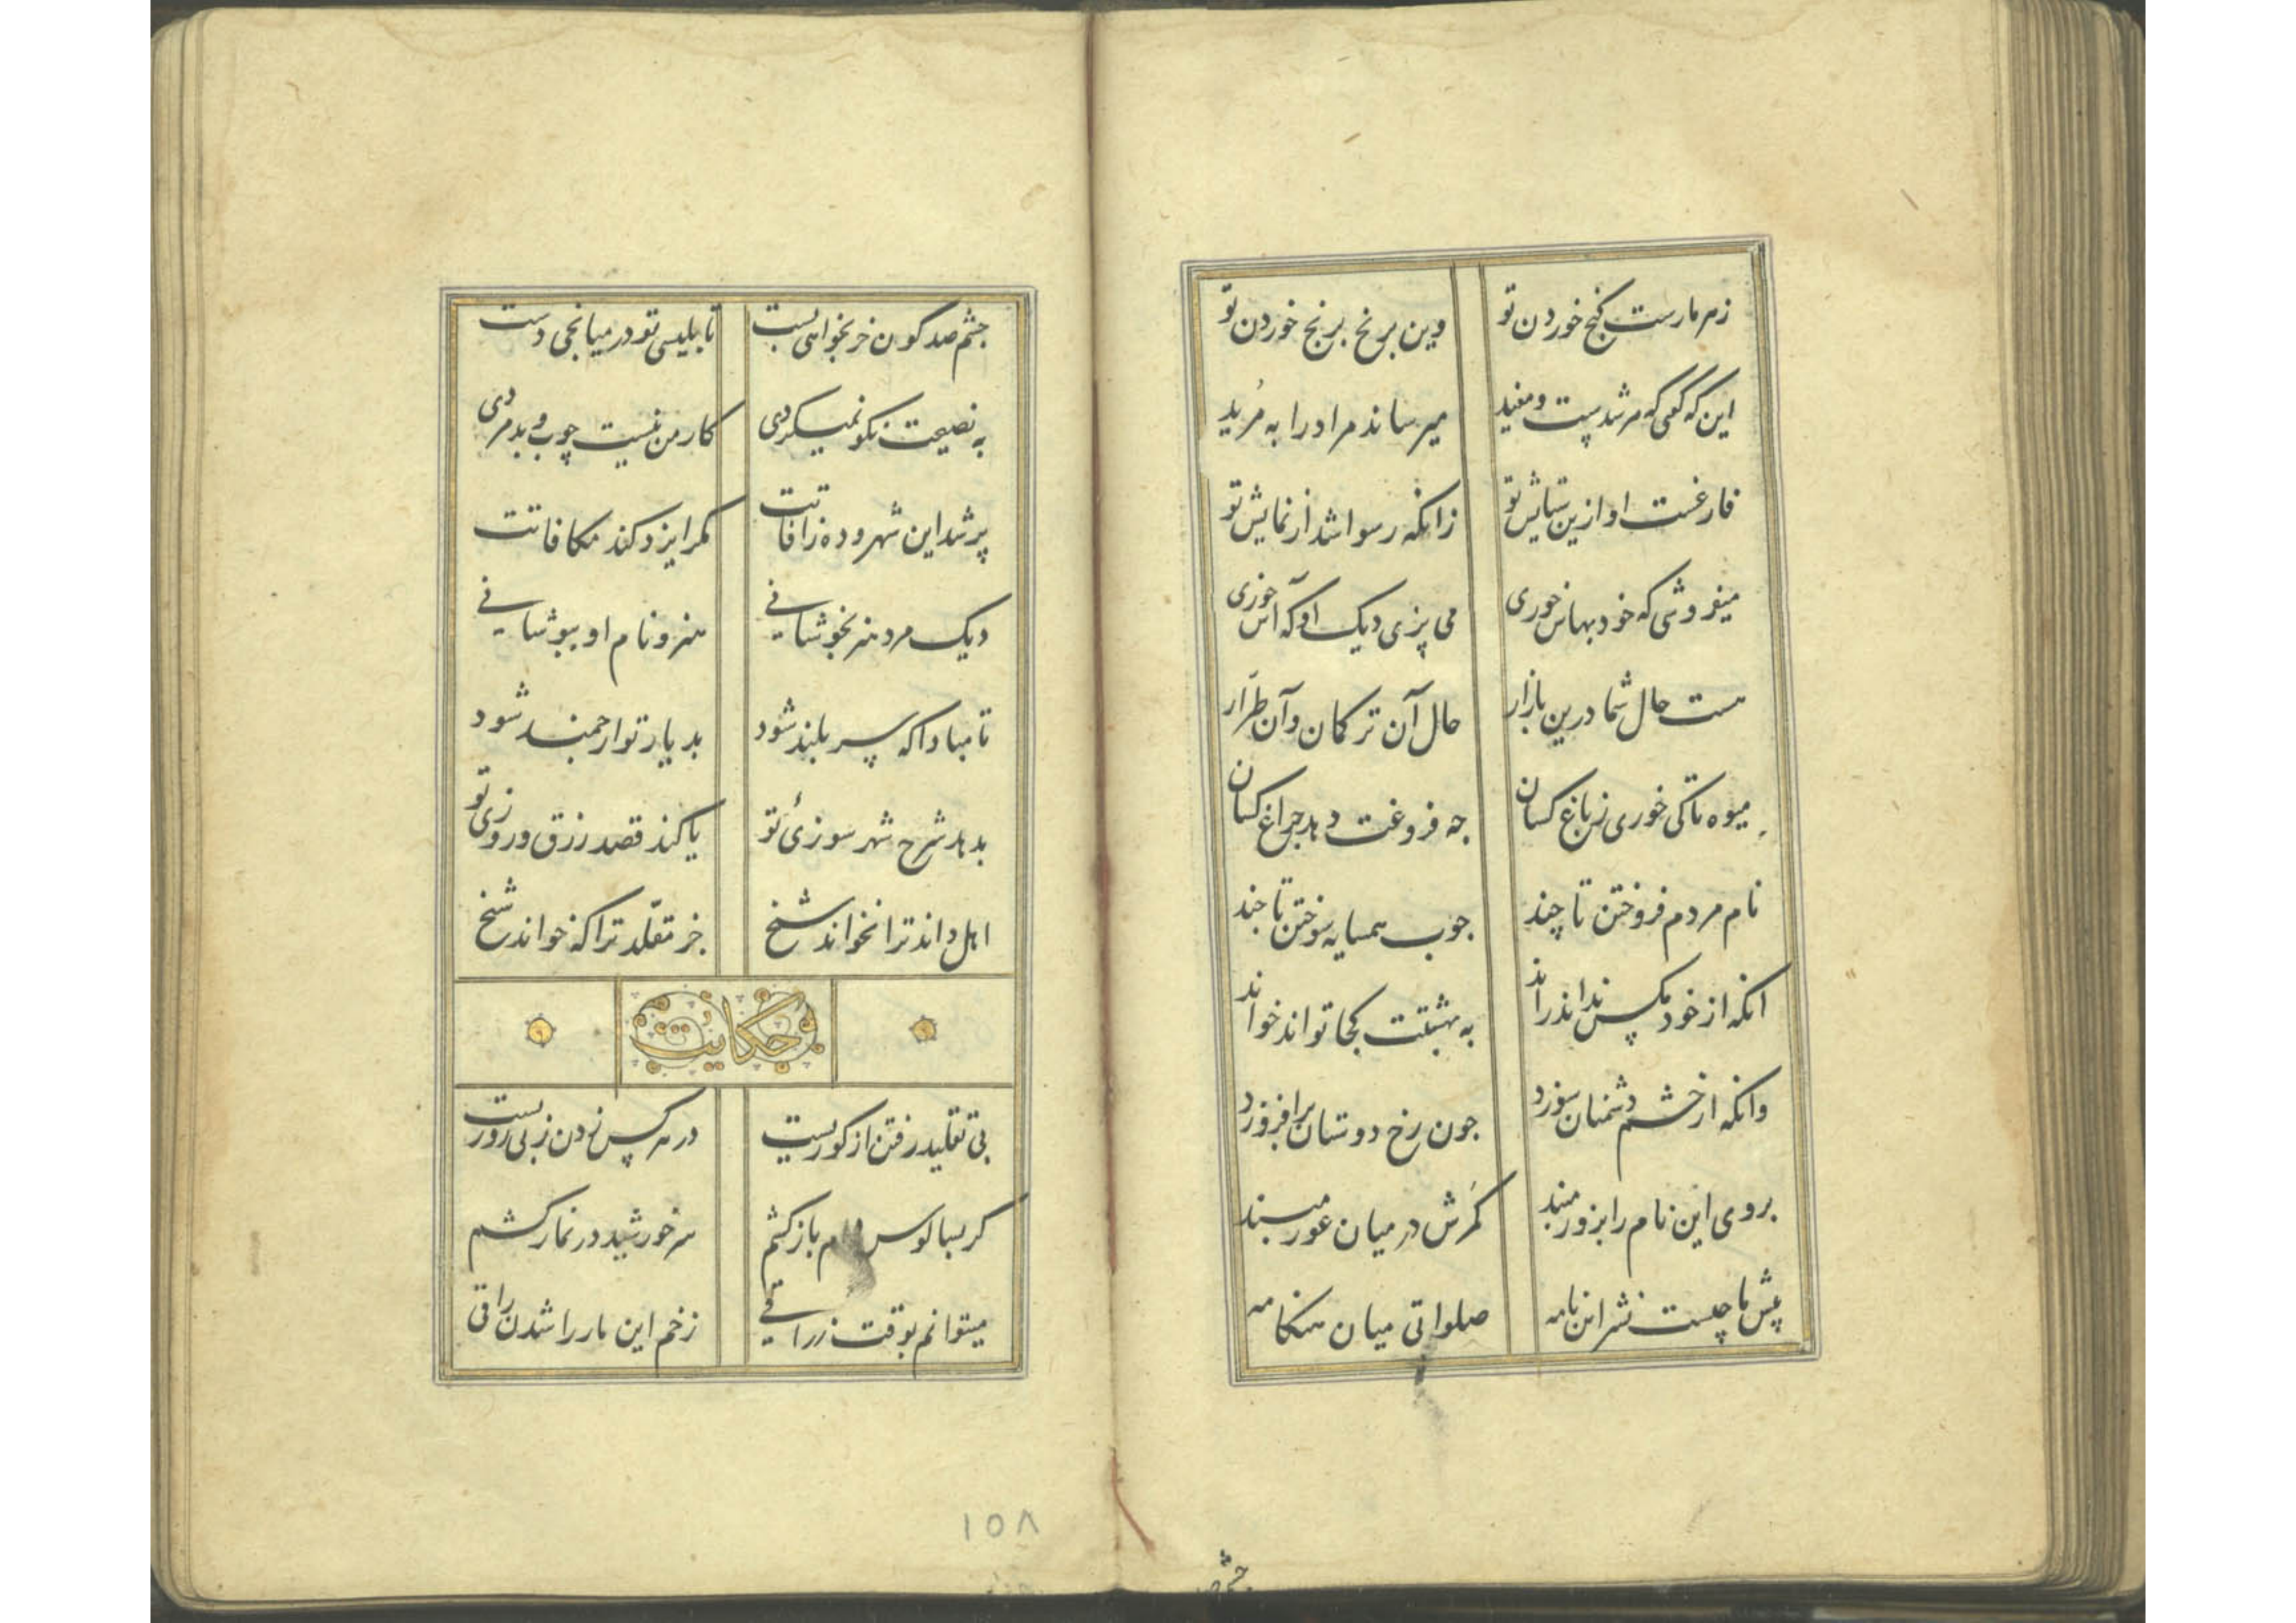 زهر مارست گنج خوردن تو وین برنج برنج خوردن تو
این که گفتی که مرشدیست و مفید میرساند مراد را به مُرید
فارغست او ازین ستایش تو زانکه رسوا شد از نمایش تو
میفروشی که خود بهاش خوری می پزی دیک او که آش خوری
هست حال شما درین بازار حال آن ترکان و آن طرّار
میوه تا کی خوری ز باغ کسان چه فروغت دهد چراغ کسان
نام مردم فروختن تا چند جوب همسایه سوختن تا جند
انکه از خود مکس نداند راند به بهشتت کجا تواند خواند
وانکه از خشم دشمنان سوزد جون رخ دوستان برافروزد
بروی این نام را بزور مبند کمرش در میان عور مبند
پیش ما چیست نشر این نامه صلواتی میان هنکامه
چشم صد کون خر بخواهی بست تا بلیسی تو در میانجی دست
به نصیحت نکو نمیکردی کار من نیست چوب و بدمردی
پر شد این شهر و ده ز آفاتت مکر ایزد کند مکافاتت
دیک مرد هنر بخوشانی هنر و نام او بپوشانی
تا مبادا که سربلند شود بدیار تو ارجمند شود
بدهد شرح شهرسوزئ تو یا کند قصد رزق و روزی تو
اهل داند ترا نخواند شیخ جز مقلّد ترا که خواند شیخ
حکایت
پی تقلید رفتن از کوریست در هر کس زدن ز بی زوریست
کر بسالوس باز کشم سر خورشید در نماز کشم
میتوانم بوقت زراقی زخم این مار را شدن راقی
۱۵۸